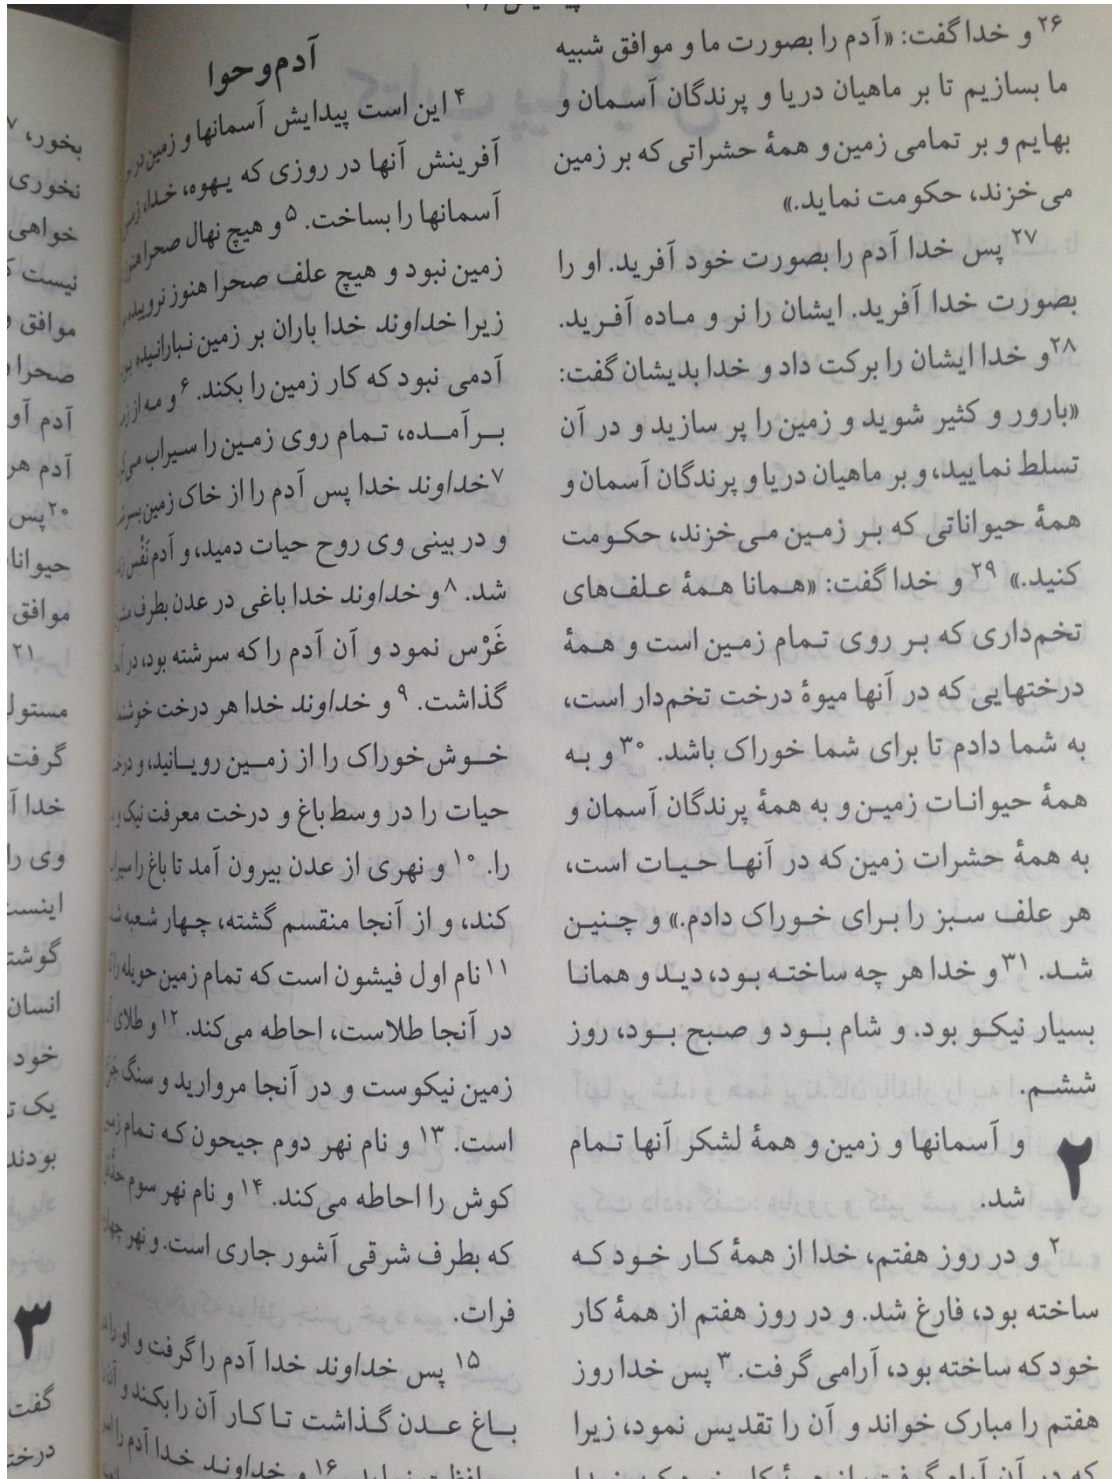 ۲۶ و خدا گفت: «آدم را بصورت ما و موافق شبیه
ما بسازیم تا بر ماهیان دریا و پرندگان آسمان و
بهایم و بر تمامی زمین و همهٔ حشراتی که بر زمین
می‌خزند، حکومت نماید.»
۲۷ پس خدا آدم را بصورت خود آفرید. او را
بصورت خدا آفرید. ایشان را نر و ماده آفرید.
۲۸ و خدا ایشان را برکت داد و خدا بدیشان گفت:
«بارور و کثیر شوید و زمین را پر سازید و در آن
تسلط نمایید، و بر ماهیان دریا و پرندگان آسمان و
همهٔ حیواناتی که بر زمین می‌خزند، حکومت
کنید.» ۲۹ و خدا گفت: «همانا همهٔ علف‌های
تخم‌داری که بر روی تمام زمین است و همهٔ
درختهایی که در آنها میوهٔ درخت تخم‌دار است،
به شما دادم تا برای شما خوراک باشد. ۳۰ و به
همهٔ حیوانات زمین و به همهٔ پرندگان آسمان و
به همهٔ حشرات زمین که در آنها حیات است،
هر علف سبز را برای خوراک دادم.» و چنین
شد. ۳۱ و خدا هر چه ساخته بود، دید و همانا
بسیار نیکو بود. و شام بود و صبح بود، روز
ششم.
۲ و آسمانها و زمین و همهٔ لشکر آنها تمام
شد.
۲ و در روز هفتم، خدا از همهٔ کار خود که
ساخته بود، فارغ شد. و در روز هفتم از همهٔ کار
خود که ساخته بود، آرامی گرفت. ۳ پس خدا روز
هفتم را مبارک خواند و آن را تقدیس نمود، زیرا
آدم و حوا
۴ این است پیدایش آسمانها و زمین در
آفرینش آنها در روزی که یهوه، خدا، زمین
آسمانها را بساخت. ۵ و هیچ نهال صحرا هنوز
زمین نبود و هیچ علف صحرا هنوز نروییده
زیرا خداوند خدا باران بر زمین نبارانیده بود
آدمی نبود که کار زمین را بکند. ۶ و مه از
برآمده، تمام روی زمین را سیراب
۷ خداوند خدا پس آدم را از خاک زمین
و در بینی وی روح حیات دمید، و آدم نَفْس
شد. ۸ و خداوند خدا باغی در عدن بطرف
غَرْس نمود و آن آدم را که سرشته بود، در
گذاشت. ۹ و خداوند خدا هر درخت
خوش‌خوراک را از زمین رویانید، و
حیات را در وسط باغ و درخت معرفت نیک
را. ۱۰ و نهری از عدن بیرون آمد تا باغ را
کند، و از آنجا منقسم گشته، چهار شعبه
۱۱ نام اول فیشون است که تمام زمین حویله را
در آنجا طلاست، احاطه می‌کند. ۱۲ و طلای
زمین نیکوست و در آنجا مروارید و سنگ
است. ۱۳ و نام نهر دوم جیحون که تمام
کوش را احاطه می‌کند. ۱۴ و نام نهر سوم
که بطرف شرقی آشور جاری است. و نهر
فرات.
۱۵ پس خداوند خدا آدم را گرفت و او را
باغ عدن گذاشت تا کار آن را بکند و
۱۶ و خداوند خدا آدم را
بخور،
نخوری
خواهی
نیست
موافق
صحرا
آدم
آدم هر
۲۰ پس
موافق
۲۱
گرفت
خدا
وی را
انسان
خود
یک
بودند
۳
گفت